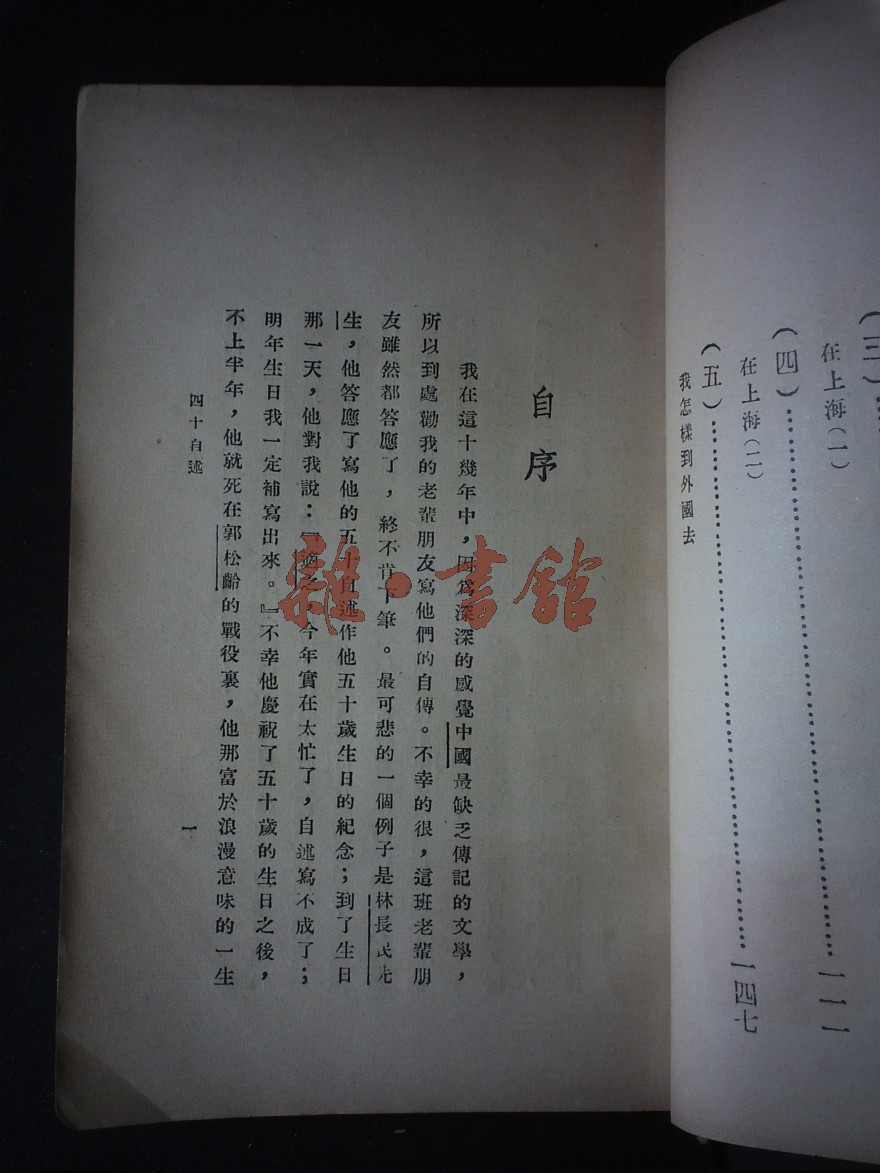 (三)……
在上海(一)
(四)……………………一一一
在上海(二)
(五)……………………一四七
我怎樣到外國去
自序
我在這十幾年中，因爲深深的感覺中國最缺乏傳記的文學，
所以到處勸我的老輩朋友寫他們的自傳。不幸的很，這班老輩朋
友雖然都答應了，終不肯下筆。最可悲的一個例子是林長民先
生，他答應了寫他的五十自述作他五十歲生日的紀念；到了生日
那一天，他對我說：『適之，今年實在太忙了，自述寫不成了；
明年生日我一定補寫出來。』不幸他慶祝了五十歲的生日之後，
不上半年，他就死在郭松齡的戰役裏，他那富於浪漫意味的一生
四十自述
一
雜·書館